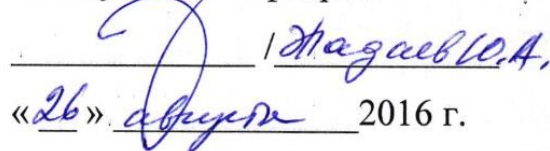 / Жадаев Ю.А.
«26» августа 2016 г.